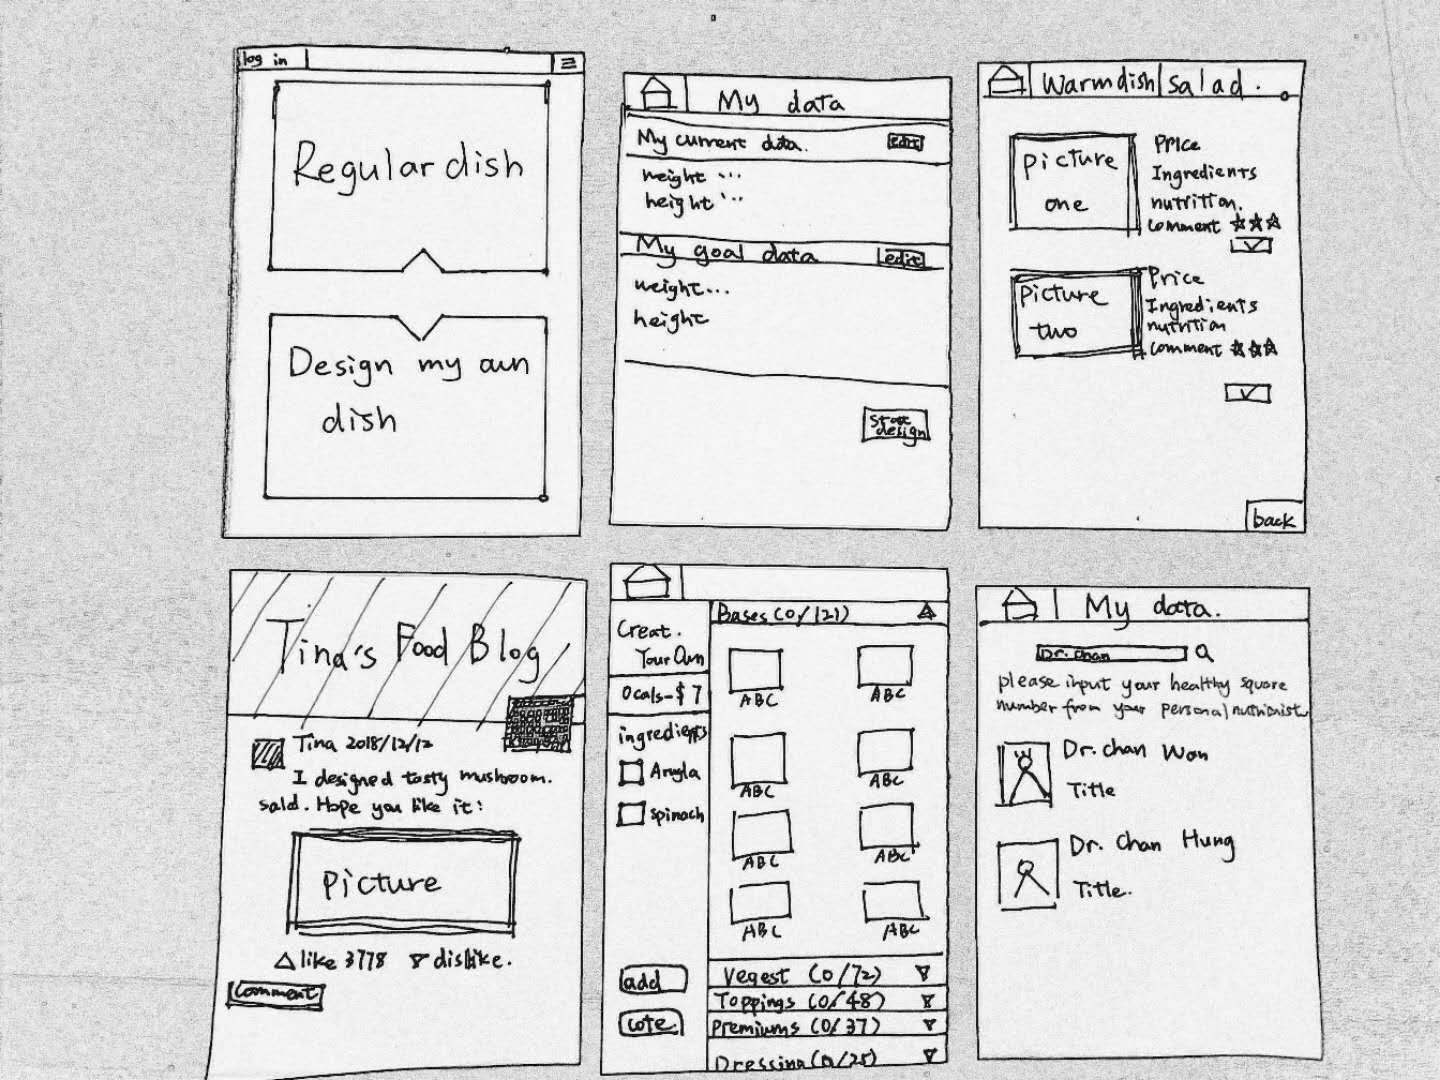 log in
Regular dish
Design my own
dish
My data
My current data.
edit
weight ...
height ...
My goal data
edit
weight...
height
Start
design
Warmdish salad.
picture
one
Price
Ingredients
nutrition.
comment
picture
two
Price
Ingredients
nutrition
comment
back
Tina's Food Blog
Tina 2018/12/12
I designed tasty mushroom.
sald. Hope you like it:
Picture
like 3778 dislike.
Comment
Creat.
Your Own
0 cals-$7
ingredients
Arugla
spinach
add
Bases (0/121)
ABC
ABC
ABC
ABC
ABC
ABC
ABC
ABC
Vegest (0/72)
Toppings (0/48)
Premiums (0/37)
Dressing (0/25)
My data.
Dr. chan
please input your healthy square
number from your personal nutrionist
Dr. chan Won
Title
Dr. Chan Hung
Title.